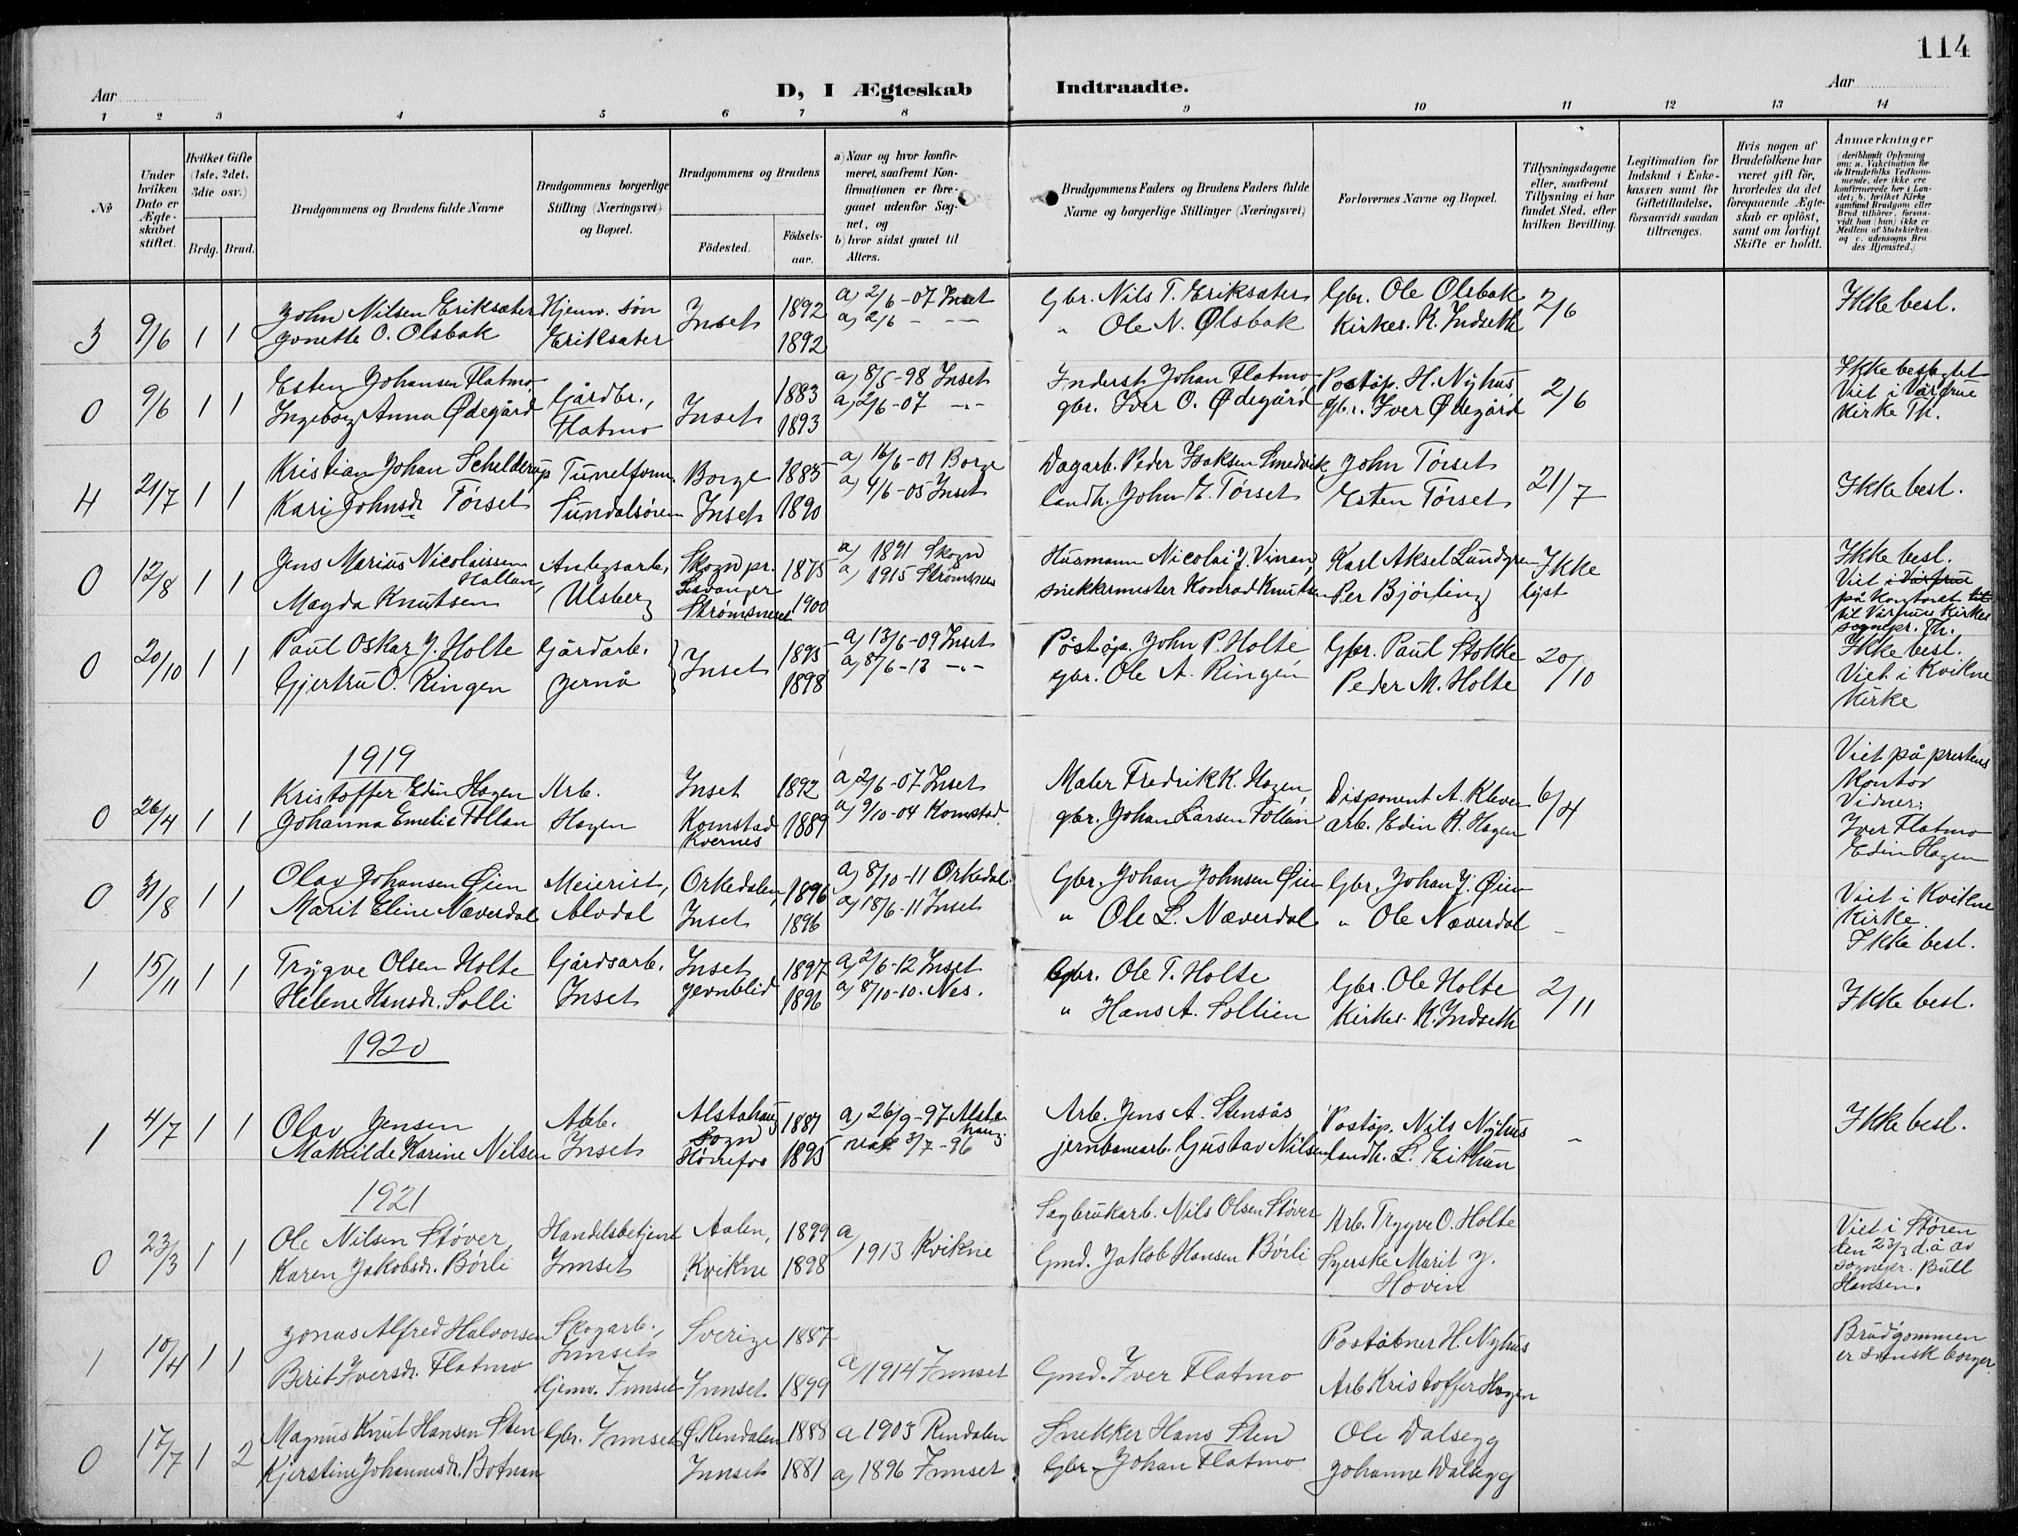 114
Aar
D, I Ægteskab Indtraadte.
Aar
1 2 3 4 5 6 7 8 9 10 11 12 13 14
№
Under hvilken Dato er Ægteskabet stiftet.
Hvilket Gifte (1ste, 2det, 3die osv.)
Brdg. Brud.
Brudgommens og Brudens fulde Navne
Brudgommens borgerlige Stilling (Næringsvei) og Bopæl.
Brudgommens og Brudens
Födested. Födselsaar.
a) Naar og hvor konfirmeret, saafremt Konfirmationen er foregaaet udenfor Sognet, og
b) hvor sidst gaaet til Alters.
Brudgommens Faders og Brudens Faders fulde Navne og borgerlige Stillinger (Næringsvei)
Forlovernes Navne og Bopæl.
Tillysningsdagene eller, saafremt Tillysning ei har fundet Sted, efter hvilken Bevilling.
Legitimation for Indskud i Enkekassen samt for Giftetilladelse, forsaavidt saadan tiltrænges.
Hvis nogen af Brudefolkene har været gift för, hvorledes da det foregaaende Ægteskab er oplöst, samt om lovligt Skifte er holdt.
Anmærkninger
(deriblandt Oplysning om: a. Vakcination for de Brudefolks Vedkommende, der ikke ere konfirmerede her i Landet; b. hvilket Kirkesamfund Brudgom eller Brud tilhörer, forsaavidt han (hun) ikke er Medlem af Statskirken. og c. udensogns Brudes Hjemsted.)
3 9/6 1 1 John Nilsen Eriksæter Hjemv. søn Inset 1892 a) 2/6-07 Inset Gbr. Nils T. Eriksæter Gbr. Ole Olsbak 2/6 Ikke besl.
Jonette O. Olsbak Eriksæter 1892 a) 2/6 - — " Ole N. Ølsbak Kirkes. K. Indseth
0 9/6 1 1 Esten Johansen Flatmo Gårdbr., Inset 1883 a) 8/5-98 Inset Inderst Johan Flatmo Postøp. H. Nyhus 2/6 Ikke beslægtet
Ingeborg Anna Ødegård Flatmo 1893 a) 2/6-07 -"- gbr. Iver O. Ødegård gbr. Iver Ødegård Viet i Vårfrue
Kirke Th.
4 21/7 1 1 Kristian Johan Schelderup Tunelform. Borge 1885 a) 16/6-01 Borge Dagarb. Peder Isaksen Smedvik John Tørset 21/7 Ikke besl.
Kari Johnsdr Tørset Sundalsøren Inset 1890 a) 4/6-05 Inset landh. John E. Tørset Esten Tørset
0 12/8 1 1 Jens Marius Nicolaissen Anlegsarb. Skogn pr. 1875 a) 1891 Skogn Husmann Nicolai J. Vinan, Karl Aksel Lundgren Ikke Ikke besl.
Hallan, Levanger Viet i Vårfrue
Magda Knutsen Ulsberg Strømsneset 1900 a) 1915 Strømsnes snekkermester Konrad Knutsen Per Bjørling lyst på Kontoret
til Vårfrue Kirkes
sognepr. Th.
0 20/10 1 1 Paul Oskar J. Holte Gårdarb. Inset 1895 a) 13/6-09 Inset Postøp. John P. Holte Gbr. Paul Stokke 20/10 Ikke besl.
Gjertru O. Ringen Jernå 1898 a) 8/6-13 -"- gbr. Ole A. Ringen Peder M. Holte Viet i Kvikne
Kirke
1919
0 26/4 1 1 Kristoffer Edin Hagen Arb. Inset 1892 a) 2/6-07 Inset Maler Fredrik K. Hagen, Disponent A. Klever 6/4 Viet på prestens
Johanna Emelie Follan Hagen Komstad 1889 a) 9/10-04 Komstad. gbr. Johan Larsen Follan arb. Edin H. Hagen Kontor
Kvernes Vidner:
Iver Flatmo
Edin Hagen
0 31/8 1 1 Olav Johansen Øien Meierist, Orkedalen, 1896 a) 8/10-11 Orkedal. Gbr. Johan Johnsen Øien Gbr. Johan J. Øien Viet i Kvikne
Marit Eline Næverdal Alvdal Inset 1896 a) 18/6-11 Inset " Ole L. Næverdal " Ole Næverdal - Kirke.
Ikke besl.
1 15/11 1 1 Trygve Olsen Holte Gårdsarb. Inset 1897 a) 2/6-12 Inset Gbr. Ole T. Holte Gbr. Ole Holte 2/11 Ikke besl.
Helene Hansdr. Solli Inset 1896 a) 8/10-10. Nes. " Hans A. Sollien Kirkes. K. Indseth
1920
1 4/7 1 1 Olav Jensen Arb. Alstahaug 1881 a) 26/9-97 Alstahaug Arb. Jens A. Stensås Postøp. Nils Nyhus - Ikke besl.
Sogn
Mathilde Karine Nilsen Inset Hønefos 1895 3/7-96 jernbanearb. Gustav Nilsen landh. L. Eithun
1921
0 23/3 1 1 Ole Nilsen Støver Handelsbetjent Aalen, 1899 a) Sagbrukarb. Nils Olsen Støver Arb. Trygve O. Holte Viet i Støren
Karen Jakobsdr. Børli Innset Kvikne 1898 1913 Kvikne Gmd. Jakob Hansen Børli Syerske Marit J. den 23/3 d.å av
Hovin sognepr. Bull
Hansen.
1 10/4 1 1 Jonas Alfred Halvorsen Skogarb., Sverige 1887 Postøbner H. Nyhus Brudgommen
Innset er svensk borger
Berit Iversdr. Flatmo Hjemv. Innset Innset 1899 a) 1914 Innset Gmd. Iver Flatmo Arb Kristoffer Hagen
0 17/7 1 2 Magnus Knut Hansen Sten Gbr. Innset Ø. Rendalen 1888 a 1903 Rendalen Snekker Hans Sten Ole Dalsegg
Kjerstine Johannesdr. Botnan Innset 1881 a) 1896 Innset Gbr. Johan Flatmo Johanne Dalsegg